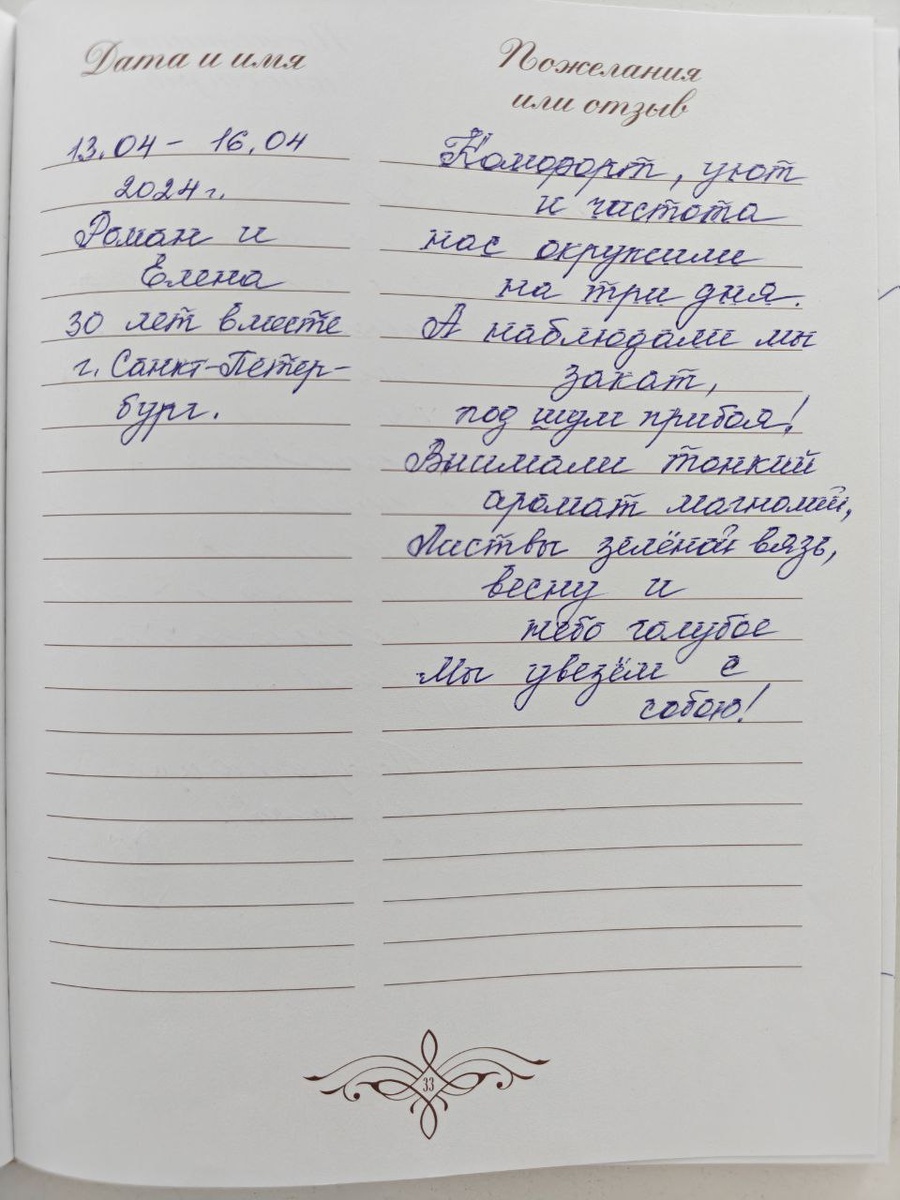 Дата и имя
13.04 - 16.04
2024г.
Роман и
Елена
30 лет вместе
г. Санкт-Петер-
бург.
Пожелания
или отзыв
Комфорт, уют
и чистота
нас окружили
на три дня.
А наблюдали мы
закат,
под шум прибоя!
Внимали тонкий
аромат магнолий,
Листвы зелёной вязь,
весну и
небо голубое
Мы увезём с
собою!
33